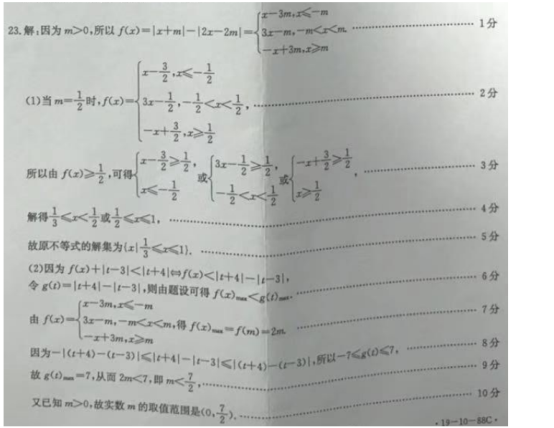 23.解:因为 m>0,所以 f(x)=|x+m|-|2x-2m|={x-3m,x≤-m
3x-m,-m<x<m.
-x+3m,x≥m
1分
(1)当 m=1/2 时,f(x)={x-3/2,x≤-1/2
3x-1/2,-1/2<x<1/2,
-x+3/2,x≥1/2
2分
所以由 f(x)≥1/2,可得{x-3/2≥1/2, x≤-1/2 或{3x-1/2≥1/2, -1/2<x<1/2 或{-x+3/2≥1/2 x≥1/2, 3分
解得1/3≤x<1/2或1/2≤x≤1, 4分
故原不等式的解集为{x|1/3≤x≤1}. 5分
(2)因为 f(x)+|t-3|<|t+4|⇔f(x)<|t+4|-|t-3|,
令 g(t)=|t+4|-|t-3|,则由题设可得 f(x)max<g(t)max. 6分
由 f(x)={x-3m,x≤-m
3x-m,-m<x<m,得 f(x)max=f(m)=2m. 7分
-x+3m,x≥m
因为-|(t+4)-(t-3)|≤|t+4|-|t-3|≤|(t+4)-(t-3)|,所以-7≤g(t)≤7, 8分
故 g(t)max=7,从而 2m<7,即 m<7/2, 9分
又已知 m>0,故实数 m 的取值范围是(0,7/2). 10分
·19-10-88C·